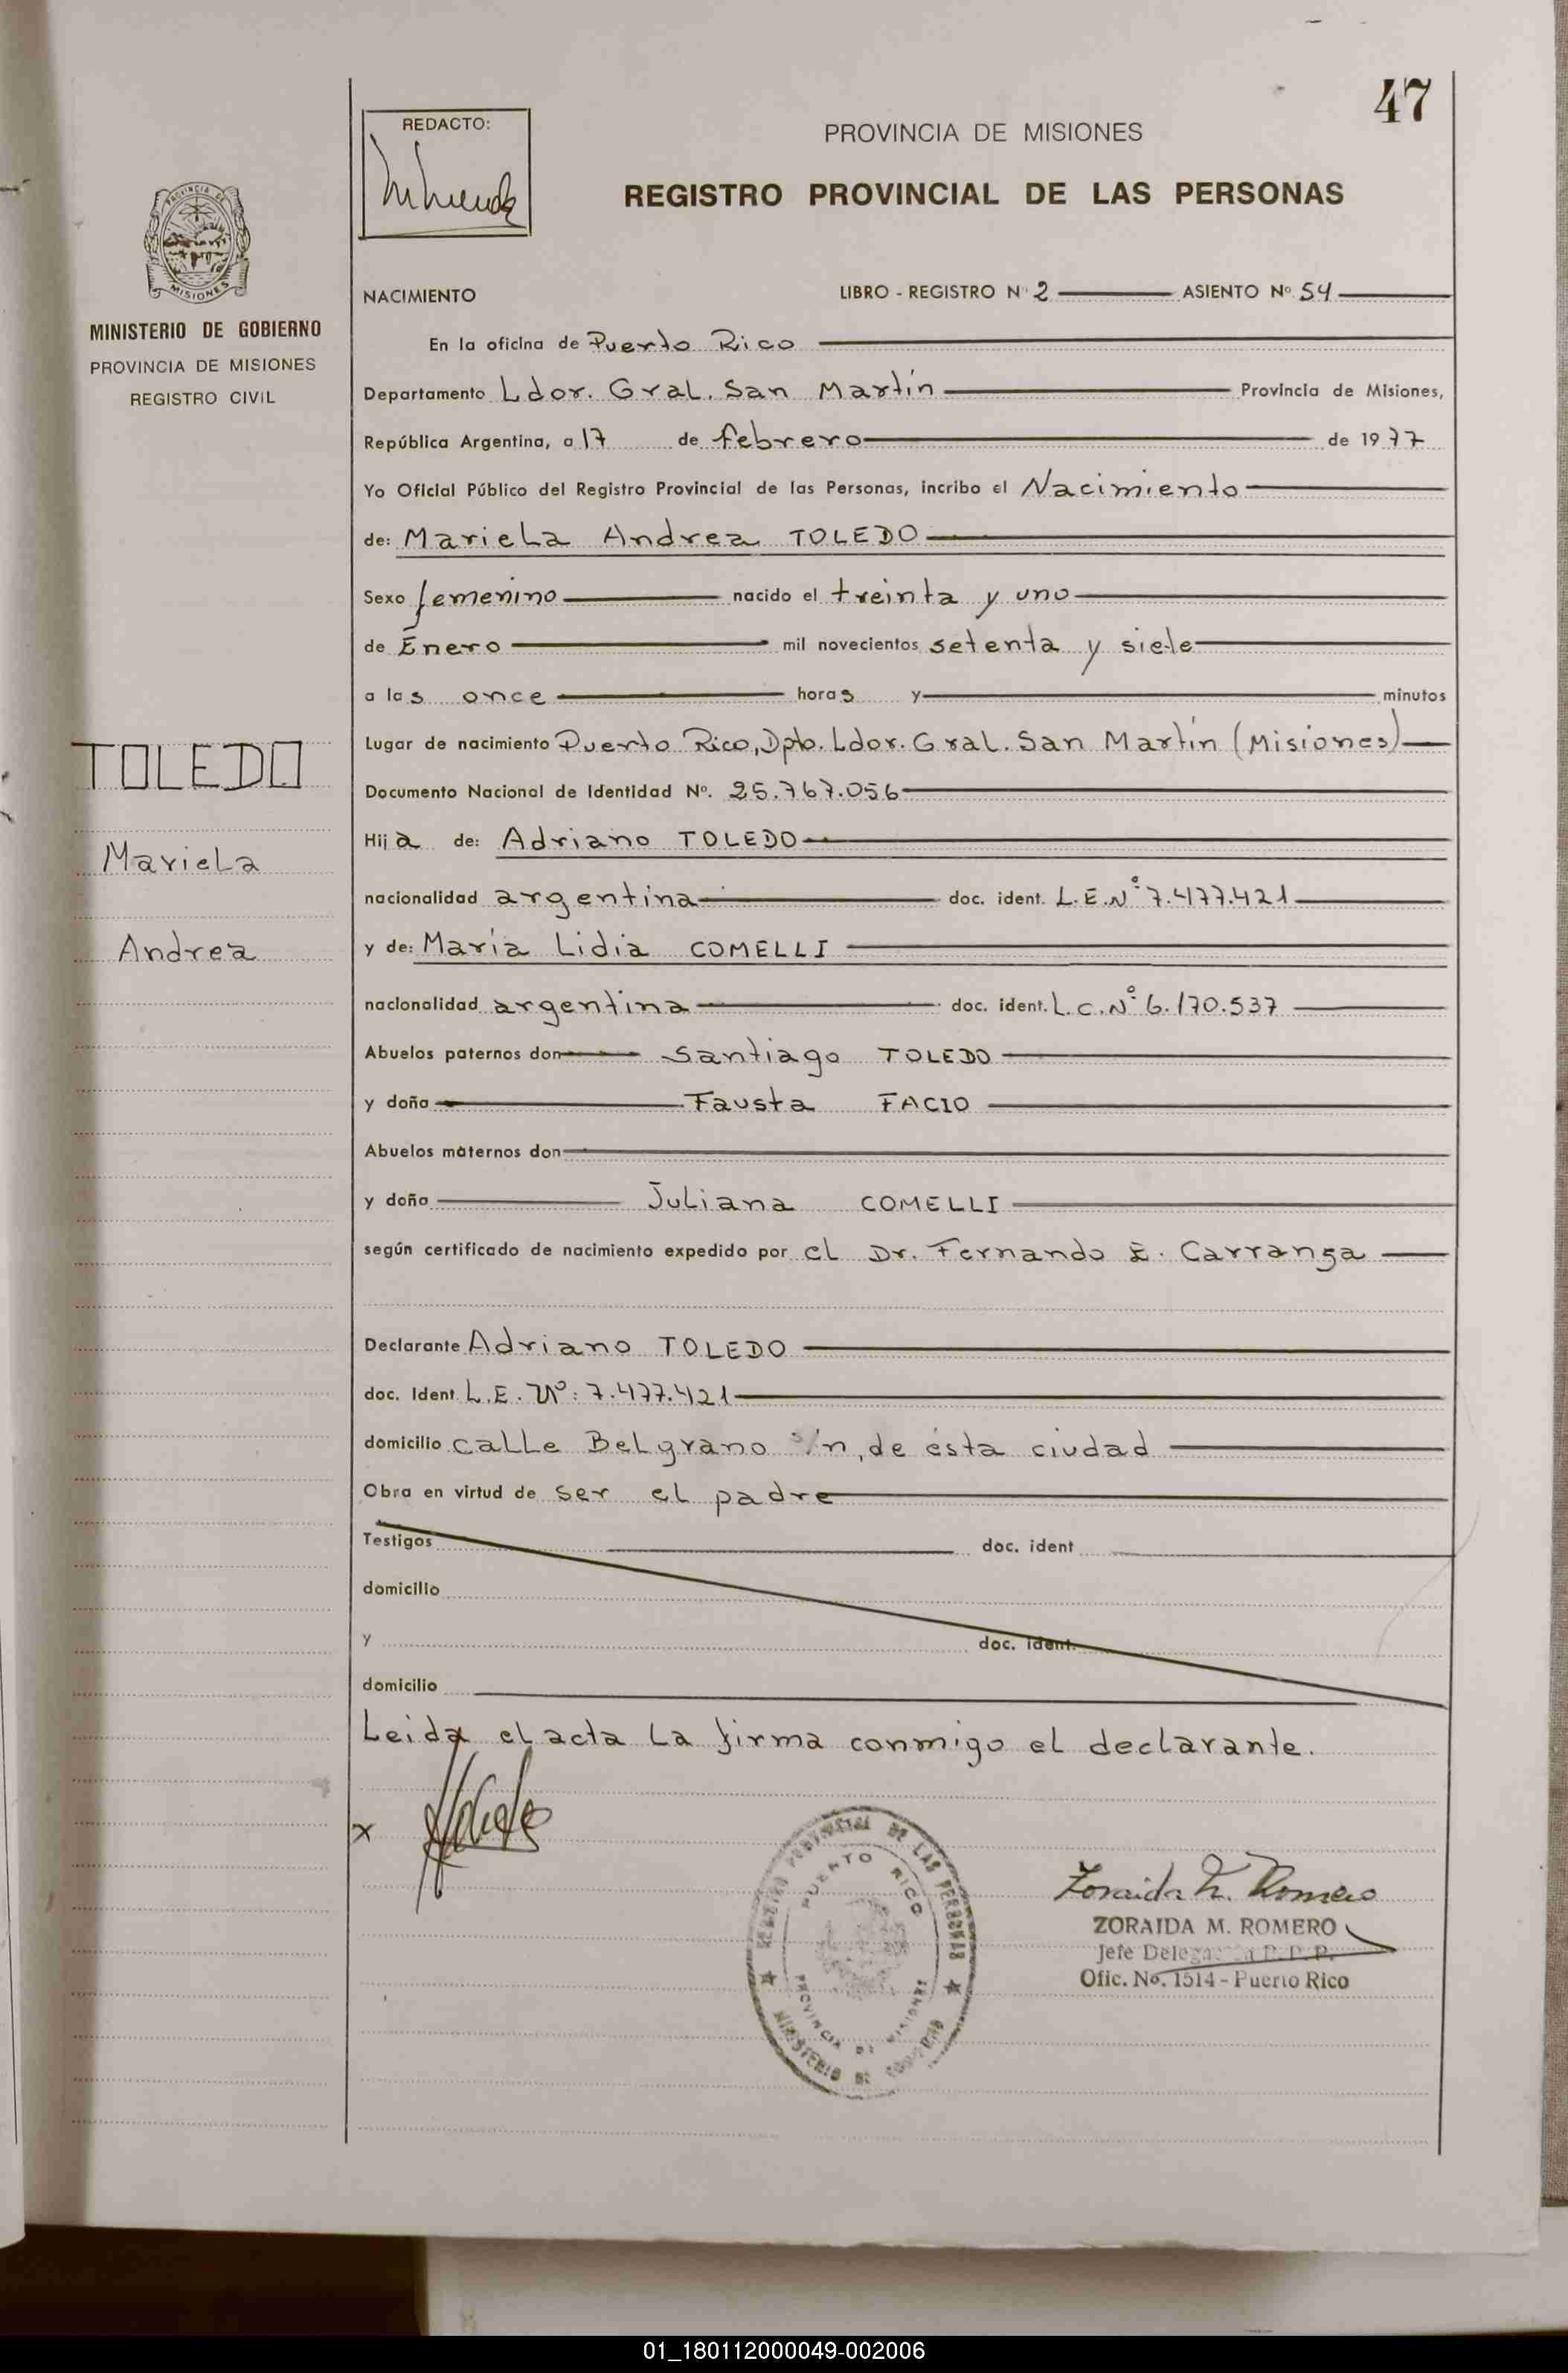 47
REDACTO:
PROVINCIA DE MISIONES
REGISTRO PROVINCIAL DE LAS PERSONAS
PROVINCIA DE
MISIONES
MINISTERIO DE GOBIERNO
PROVINCIA DE MISIONES
REGISTRO CIVIL
TOLEDO
Mariela
Andrea
NACIMIENTO LIBRO - REGISTRO Nº 2 ASIENTO Nº 54
En la oficina de Puerto Rico
Departamento Ldor. Gral. San Martín Provincia de Misiones,
República Argentina, a 17 de febrero de 1977
Yo Oficial Público del Registro Provincial de las Personas, incribo el Nacimiento
de: Mariela Andrea TOLEDO
Sexo femenino nacido el treinta y uno
de Enero mil novecientos setenta y siete
a las once horas y minutos
Lugar de nacimiento Puerto Rico, Dpto. Ldor. Gral. San Martín (Misiones)
Documento Nacional de Identidad Nº. 25.767.056
Hija de: Adriano TOLEDO
nacionalidad argentina doc. ident. L.E.Nº 7.477.421
y de: María Lidia COMELLI
nacionalidad argentina doc. ident. L.C.Nº 6.170.537
Abuelos paternos don Santiago TOLEDO
y doña Fausta FACIO
Abuelos maternos don
y doña Juliana COMELLI
según certificado de nacimiento expedido por el Dr. Fernando E. Carranza
Declarante Adriano TOLEDO
doc. Ident. L.E. Nº: 7.477.421
domicilio calle Belgrano s/n, de ésta ciudad
Obra en virtud de ser el padre
Testigos doc. ident
domicilio
y doc. ident.
domicilio
Leida el acta la firma conmigo el declarante.
x
REGISTRO PROVINCIAL DE LAS PERSONAS
PUERTO RICO
PROVINCIA DE MISIONES
MINISTERIO DE GOBIERNO
Zoraida M. Romero
ZORAIDA M. ROMERO
Jefe Delegación R.P.P.
Ofic. No. 1514 - Puerto Rico
01_180112000049-002006